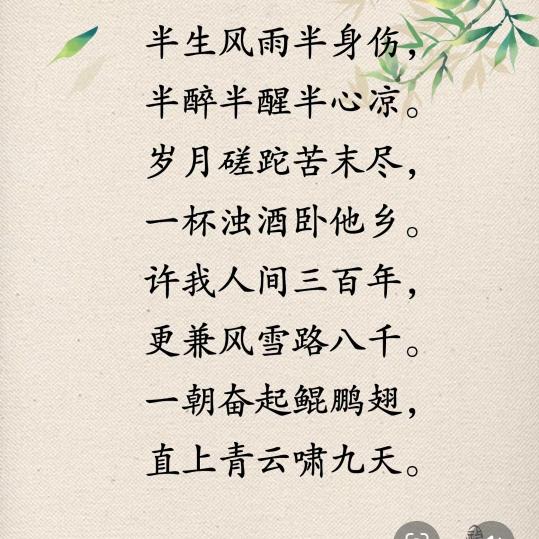 半生风雨半身伤，
半醉半醒半心凉。
岁月磋跎苦末尽，
一杯浊酒卧他乡。
许我人间三百年，
更兼风雪路八千。
一朝奋起鲲鹏翅，
直上青云啸九天。